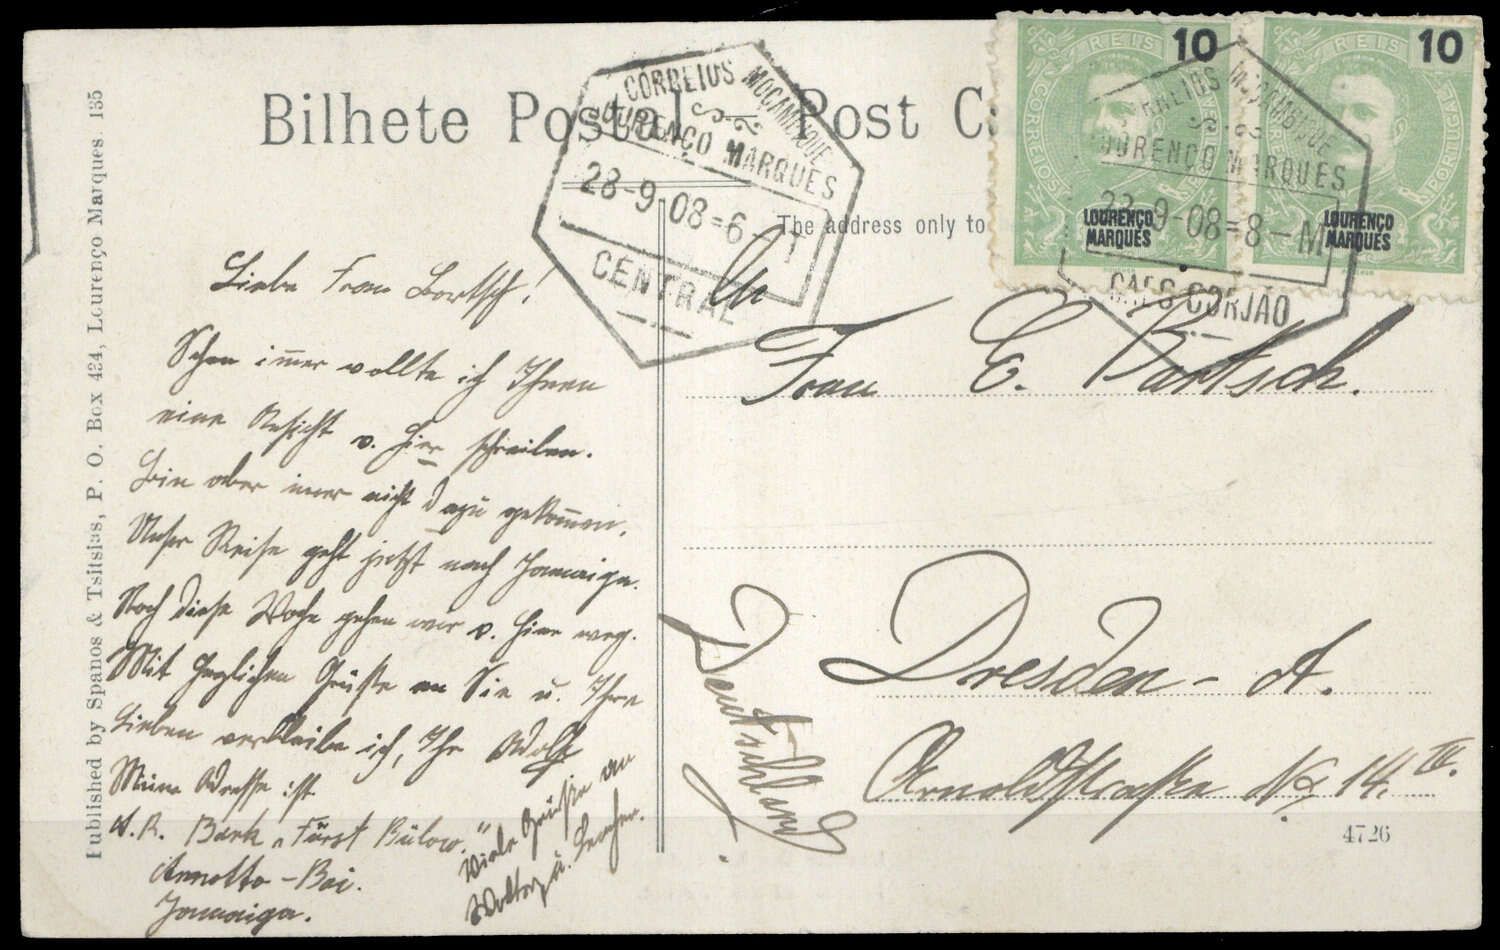 Bilhete Postal — Post C
The address only to
Published by Spanos & Tsitsias, P. O. Box 424, Lourenço Marques. 135
CORREIOS MOÇAMBIQUE
LOURENÇO MARQUES
28-9-08=6-T
CENTRAL
REIS 10
CORREIOS
LOURENÇO
MARQUES
REIS 10
PORTUGAL
LOURENÇO
MARQUES
MOÇAMBIQUE
LOURENÇO MARQUES
9-08=8-M
CAES GORJÃO
Liebe Frau Bartsch!
Schon im̅er wollte ich Ihnen
eine Ansicht v. hier schreiben.
Bin aber im̅er nicht dazu gekom̅en.
Unser Reise geht jetzt nach Jamaiga.
Noch diese Woche gehen wir v. hier weg.
Mit herzlichen Grüße an Sie u. Ihre
Lieben verbleibe ich, Ihr Adolf
Meine Adresse ist
A. R. Bark „Fürst Bülow."
Annotto - Bai.
Jamaiga.
Viele Grüße an
u.
An
Frau E. Bartsch.
Dresden - A.
Arnoldstraße No 14. IV.
Deutschland.
4726